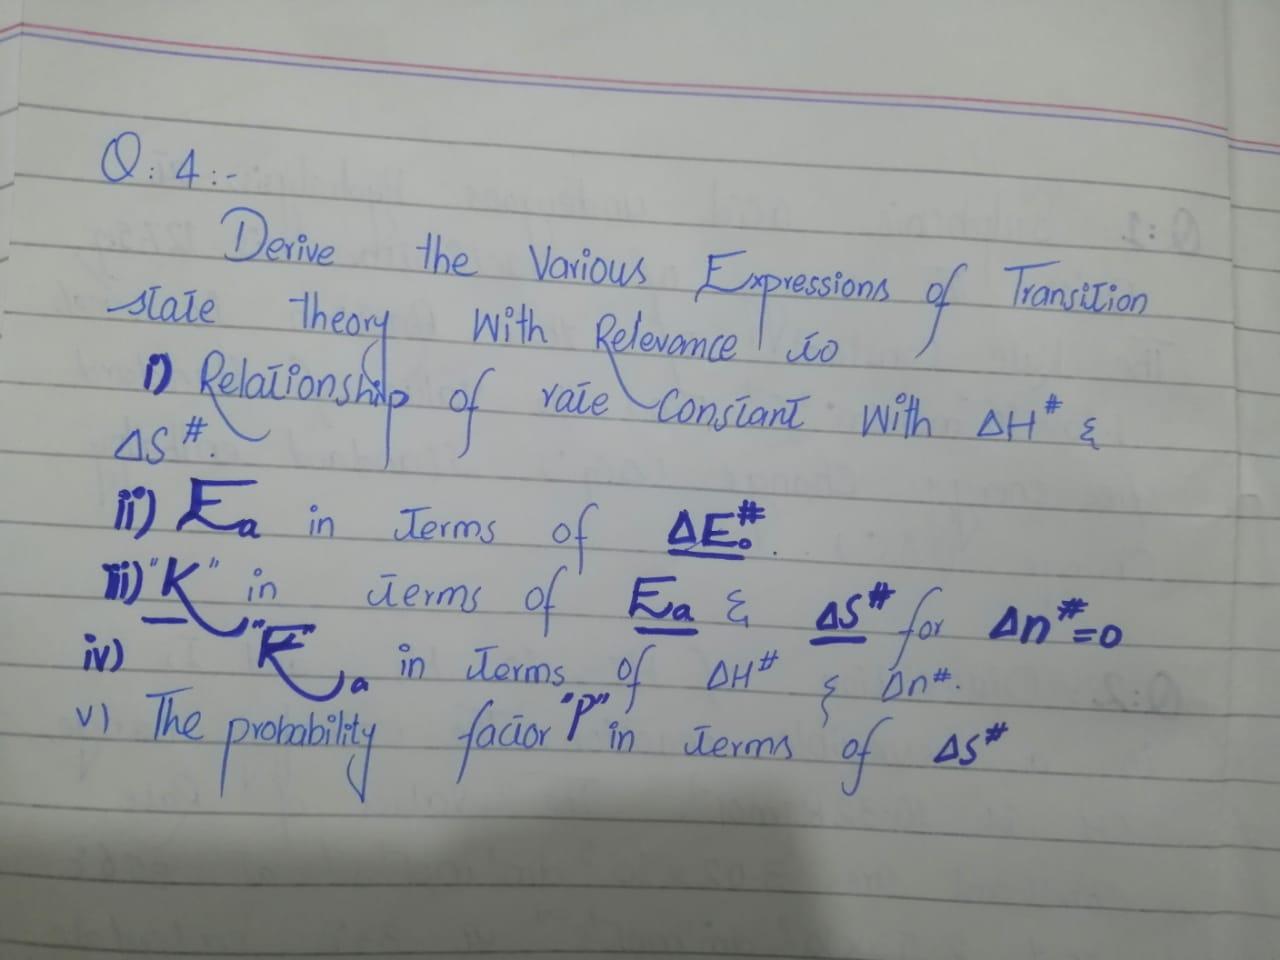 Q:4:-
Derive the Various Expressions of Transition
state theory With Relevance to
i) Relationship of rate Constant With ΔH# &
ΔS#.
ii) Ea in terms of ΔE₀#.
iii) "K" in terms of Ea & ΔS# for Δn#=0
iv) "E"a in terms of ΔH# & Δn#.
v) The probability factor "P" in terms of ΔS#